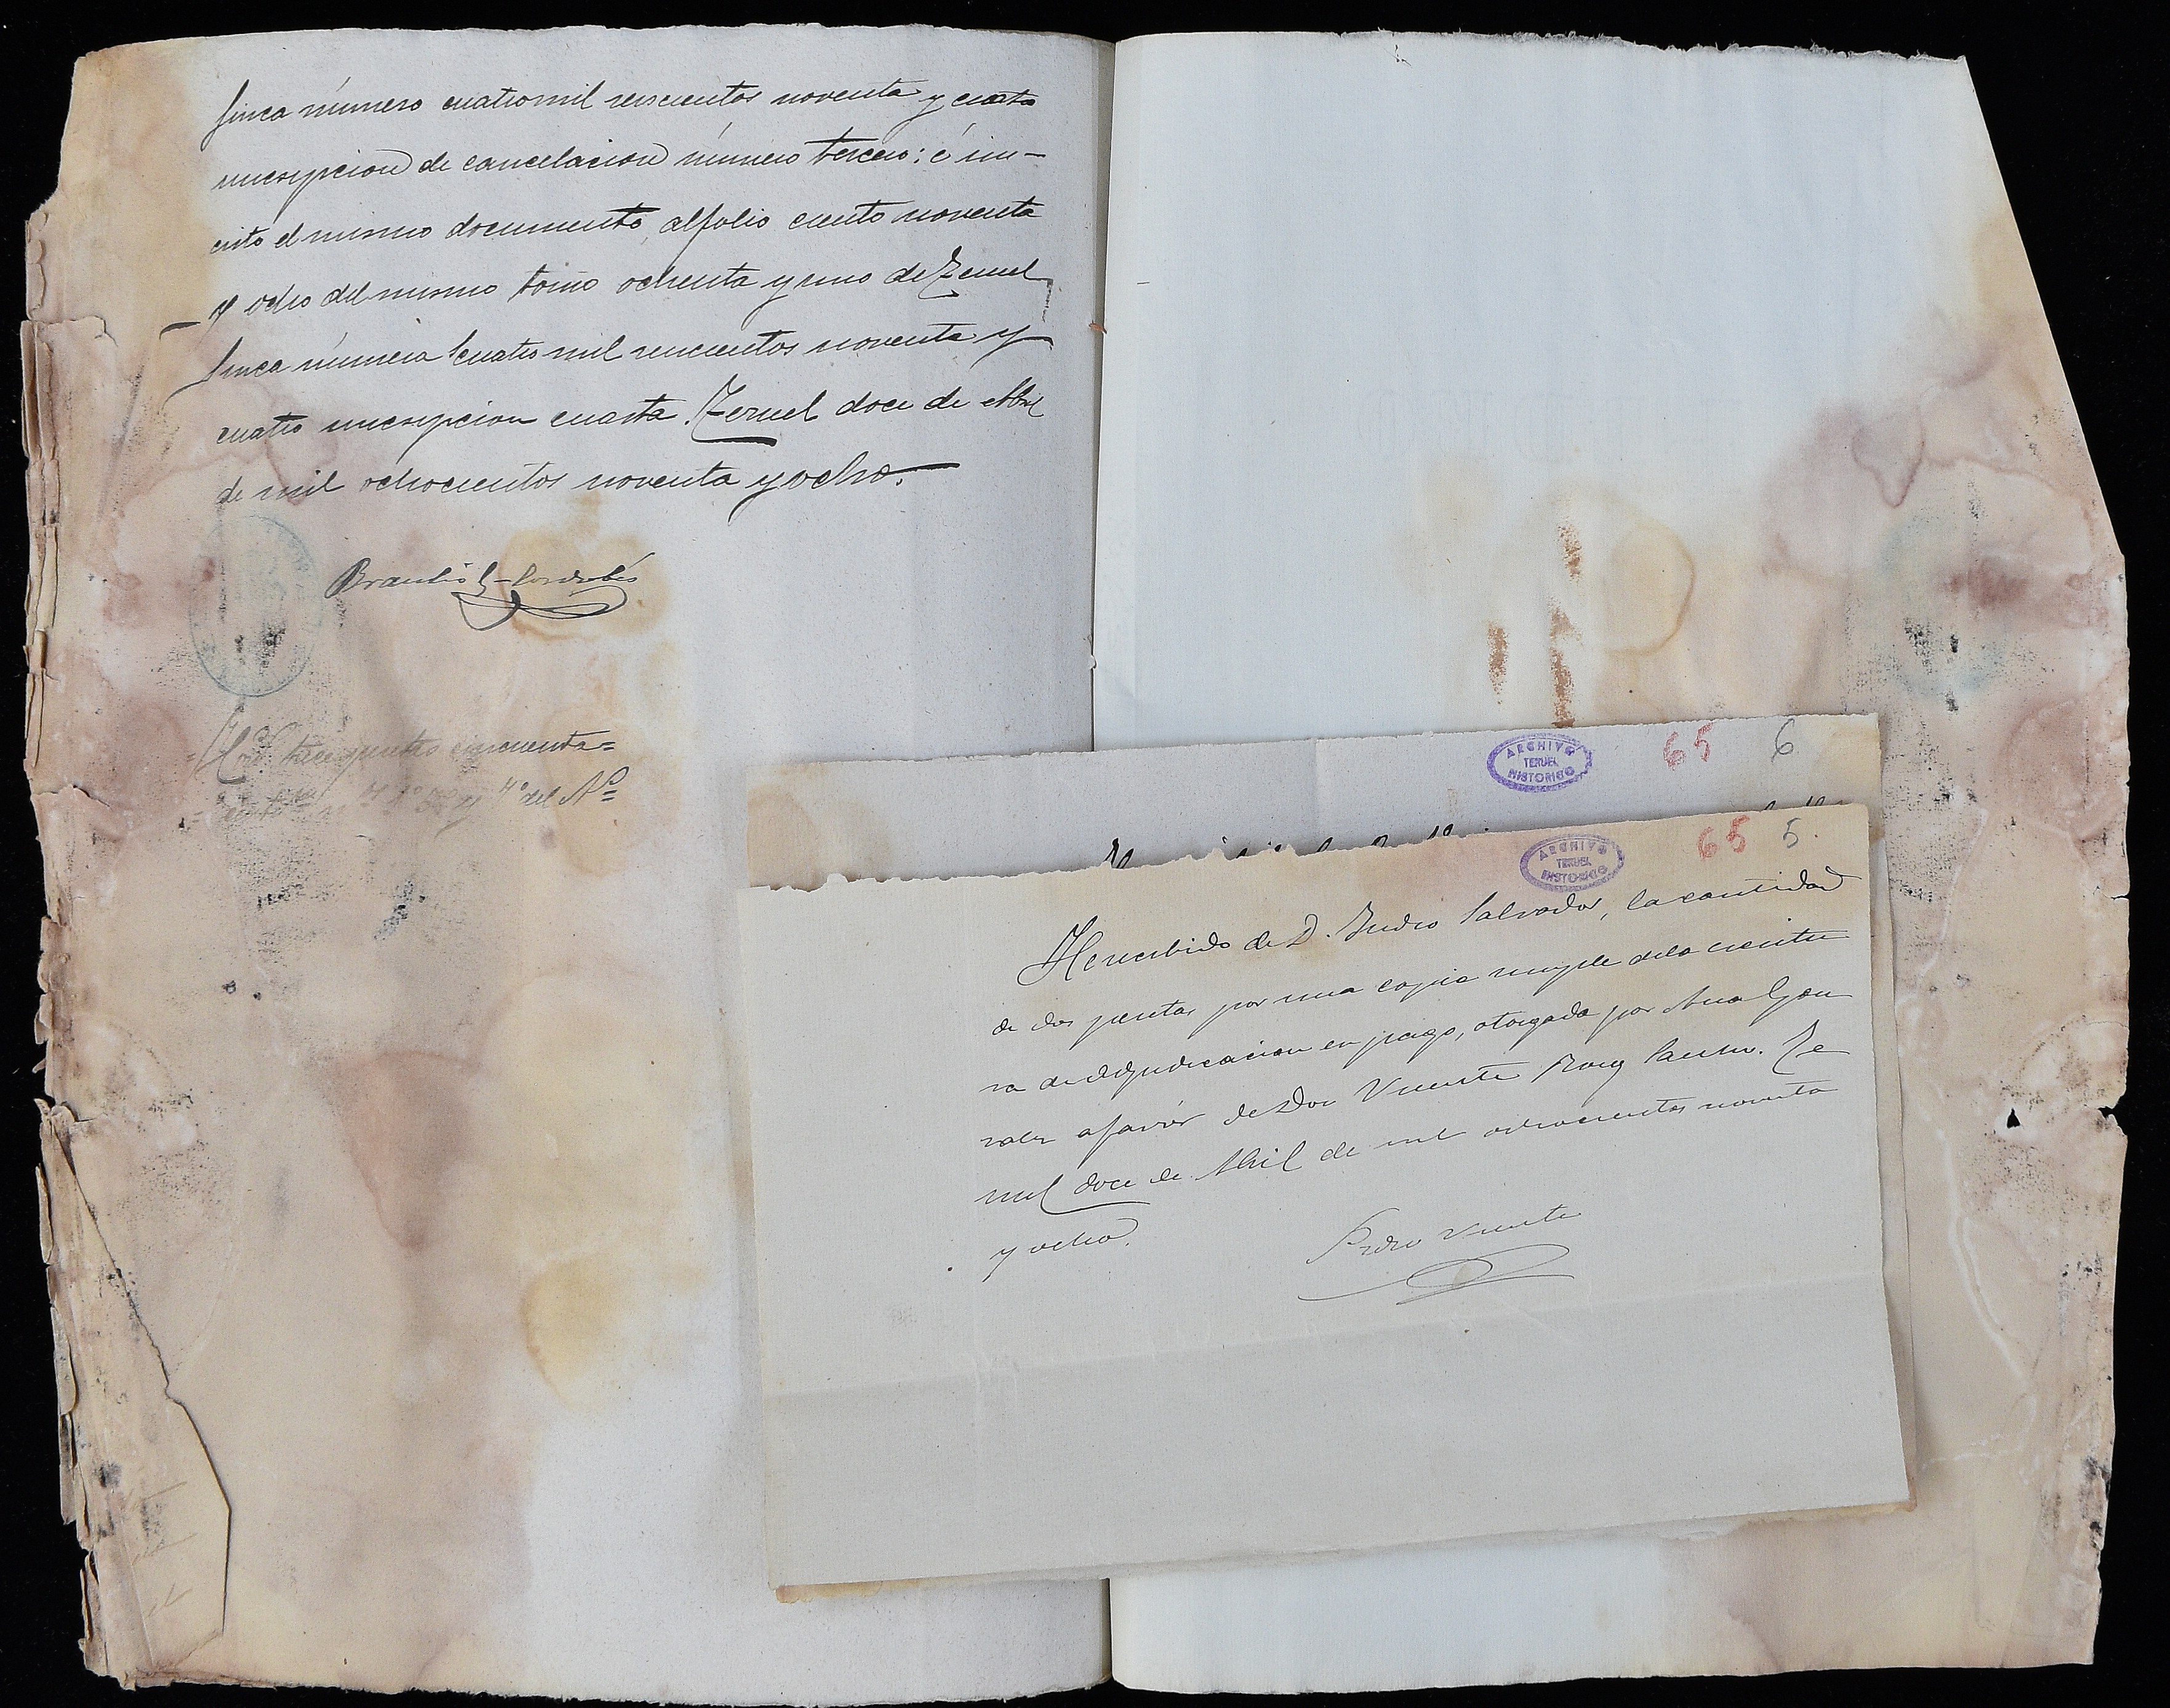 finca número cuatromil seiscientos noventa y cuatro
inscripcion de cancelacion número tercero: é ins-
crito el mismo documento, al folio ciento noventa
y ocho del mismo tomo ochenta y uno de Teruel
finca número cuatro mil seiscientos noventa y
cuatro inscripcion cuarta. Teruel doce de Abril
de mil ochocientos noventa y ocho.
Braulio G-Cordobés
Hon.s trece pesetas cincuenta=
y 4º del Nº
ARCHIVO
TERUEL
HISTORICO
65 6
ARCHIVO
TERUEL
HISTORICO
65 5.
He recibido de D. Isidro Salvador, la cantidad
de dos pesetas por una copia simple de la escritu
ra de adjudicacion en pago, otorgada por Ana Gon
zalez a favór de Don Vicente Roig Te
ruel doce de Abril de mil ochocientos noventa
y ocho.
Pedro Vicente